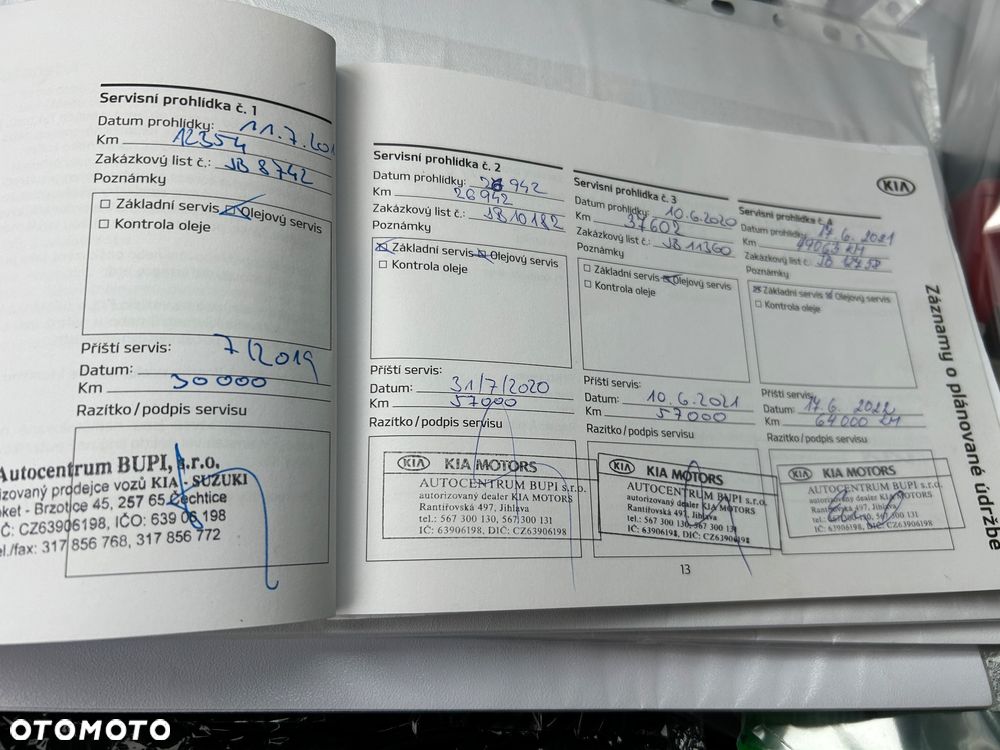 Servisní prohlídka č. 1
Datum prohlídky: 11.7.201
Km 12354
Zakázkový list č.: JB 8742
Poznámky
Základní servis Olejový servis
Kontrola oleje
Příští servis: 7/2019
Datum:
Km 30000
Razítko/podpis servisu
Autocentrum BUPI, s.r.o.
izovaný prodejce vozů KIA - SUZUKI
ket - Brzotice 45, 257 65 Čechtice
IČ: CZ63906198, IČO: 639 06 198
el./fax: 317 856 768, 317 856 772
Servisní prohlídka č. 2
Datum prohlídky: 942
Km 26942
Zakázkový list č.: JB10182
Poznámky
Základní servis Olejový servis
Kontrola oleje
Příští servis:
Datum: 31/7/2020
Km 57000
Razítko/podpis servisu
KIA KIA MOTORS
AUTOCENTRUM BUPI s.r.o.
autorizovaný dealer KIA MOTORS
Rantířovská 497, Jihlava
tel.: 567 300 130, 567 300 131
IČ: 63906198, DIČ: CZ63906198
Servisní prohlídka č. 3
Datum prohlídky: 10.6.2020
Km 37602
Zakázkový list č.: JB 11360
Poznámky
Základní servis Olejový servis
Kontrola oleje
Příští servis:
Datum: 10.6.2021
Km 57000
Razítko/podpis servisu
KIA KIA MOTORS
AUTOCENTRUM BUPI s.r.o.
autorizovaný dealer KIA MOTORS
Rantířovská 497, Jihlava
tel.: 567 300 130, 567 300 131
IČ: 63906198, DIČ: CZ63906198
KIA
Servisní prohlídka č. 4
Datum prohlídky: 17.6. 2021
Km 49063 KM
Zakázkový list č.: JB
Poznámky
Základní servis Olejový servis
Kontrola oleje
Příští servis:
Datum: 17.6. 2022
Km 64000 KM
Razítko/podpis servisu
KIA KIA MOTORS
AUTOCENTRUM BUPI s.r.o.
autorizovaný dealer KIA MOTORS
Rantířovská 497, Jihlava
tel.: 567 300 130, 567 300 131
IČ: 63906198, DIČ: CZ63906198
Záznamy o plánované údržbe
13
OTOMOTO